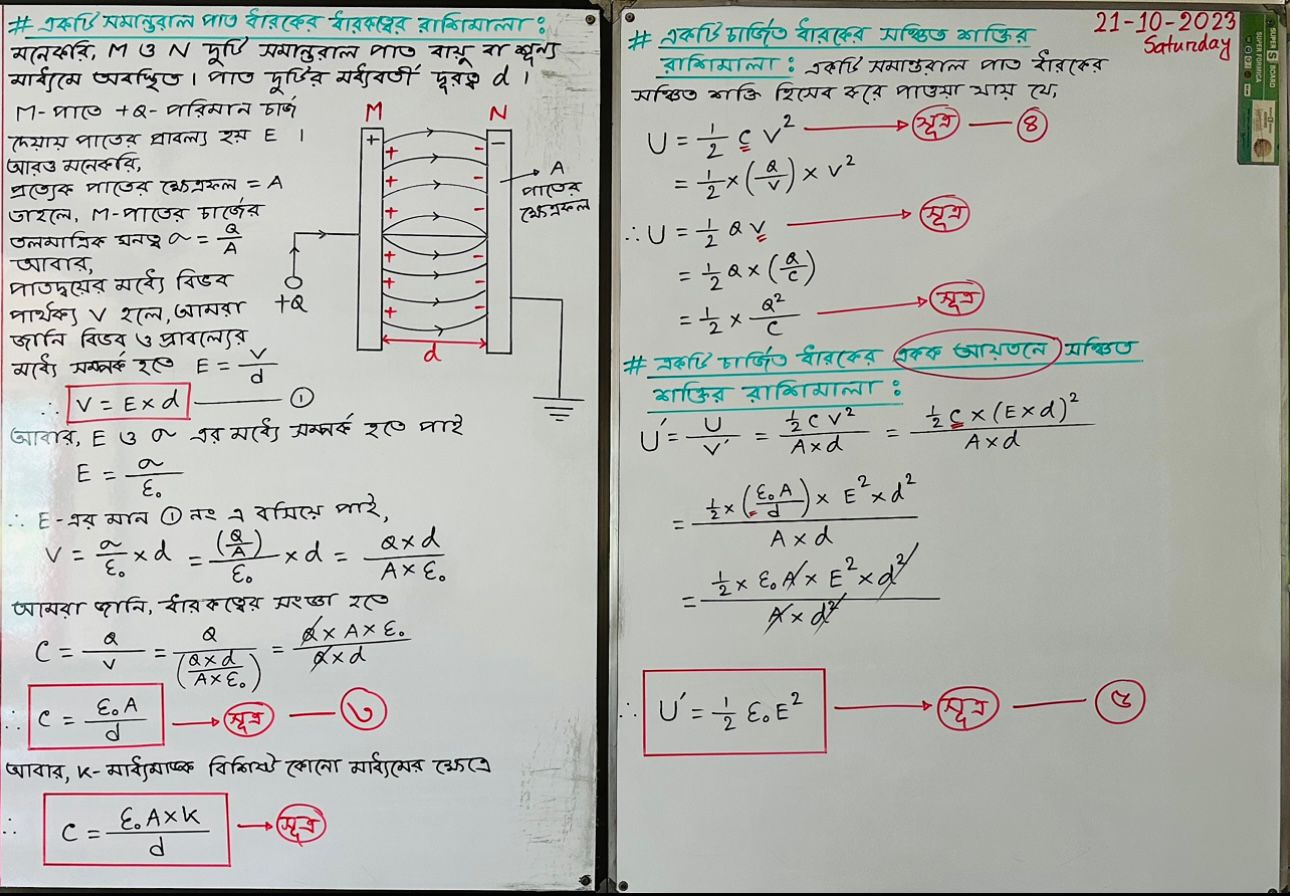 # একটি সমান্তরাল পাত ধারকের ধারকত্বের রাশিমালা :
মনেকরি, M ও N দুটি সমান্তরাল পাত বায়ু বা শূন্য
মাধ্যমে অবস্থিত। পাত দুটির মধ্যবর্তী দূরত্ব d ।
M- পাতে +Q- পরিমান চার্জ
দেয়ায় পাতের প্রাবল্য হয় E ।
আরও মনেকরি,
প্রত্যেক পাতের ক্ষেত্রফল = A
তাহলে, M-পাতের চার্জের
তলমাত্রিক ঘনত্ব σ = Q/A
আবার,
পাতদ্বয়ের মধ্যে বিভব
পার্থক্য V হলে, আমরা
জানি বিভব ও প্রাবল্যের
মধ্যে সম্পর্ক হতে E = V/d
∴ V = E×d ①
M N
+ −
+ −
+ −
+ −
+ −
+ −
+ −
d
+Q
A
পাতের
ক্ষেত্রফল
আবার, E ও σ এর মধ্যে সম্পর্ক হতে পাই
E = σ/ε₀
∴ E-এর মান ① নং এ বসিয়ে পাই,
V = σ/ε₀ × d = (Q/A)/ε₀ × d = Q×d/A×ε₀
আমরা জানি, ধারকত্বের সংজ্ঞা হতে
C = Q/V = Q/(Q×d/A×ε₀) = Q×A×ε₀/Q×d
∴ C = ε₀A/d → সূত্র — ৩
আবার, K- মাধ্যমাঙ্ক বিশিষ্ট কোনো মাধ্যমের ক্ষেত্রে
∴ C = ε₀A×K/d → সূত্র
21-10-2023
Saturday
# একটি চার্জিত ধারকের সঞ্চিত শক্তির
রাশিমালা : একটি সমান্তরাল পাত ধারকের
সঞ্চিত শক্তি হিসেব করে পাওয়া যায় যে,
U = ½ C V² → সূত্র — ৪
= ½ × (Q/V) × V²
∴ U = ½ Q V → সূত্র
= ½ Q × (Q/C)
= ½ × Q²/C → সূত্র
# একটি চার্জিত ধারকের একক আয়তনে সঞ্চিত
শক্তির রাশিমালা :
U′ = U/V′ = ½ C V²/A×d = ½ C × (E×d)²/A×d
= ½ × (ε₀A/d) × E² × d²/A×d
= ½ × ε₀A × E² × d²/A×d²
∴ U′ = ½ ε₀E² → সূত্র — ৫
SUPER S BOARD
SUPER FORMICA